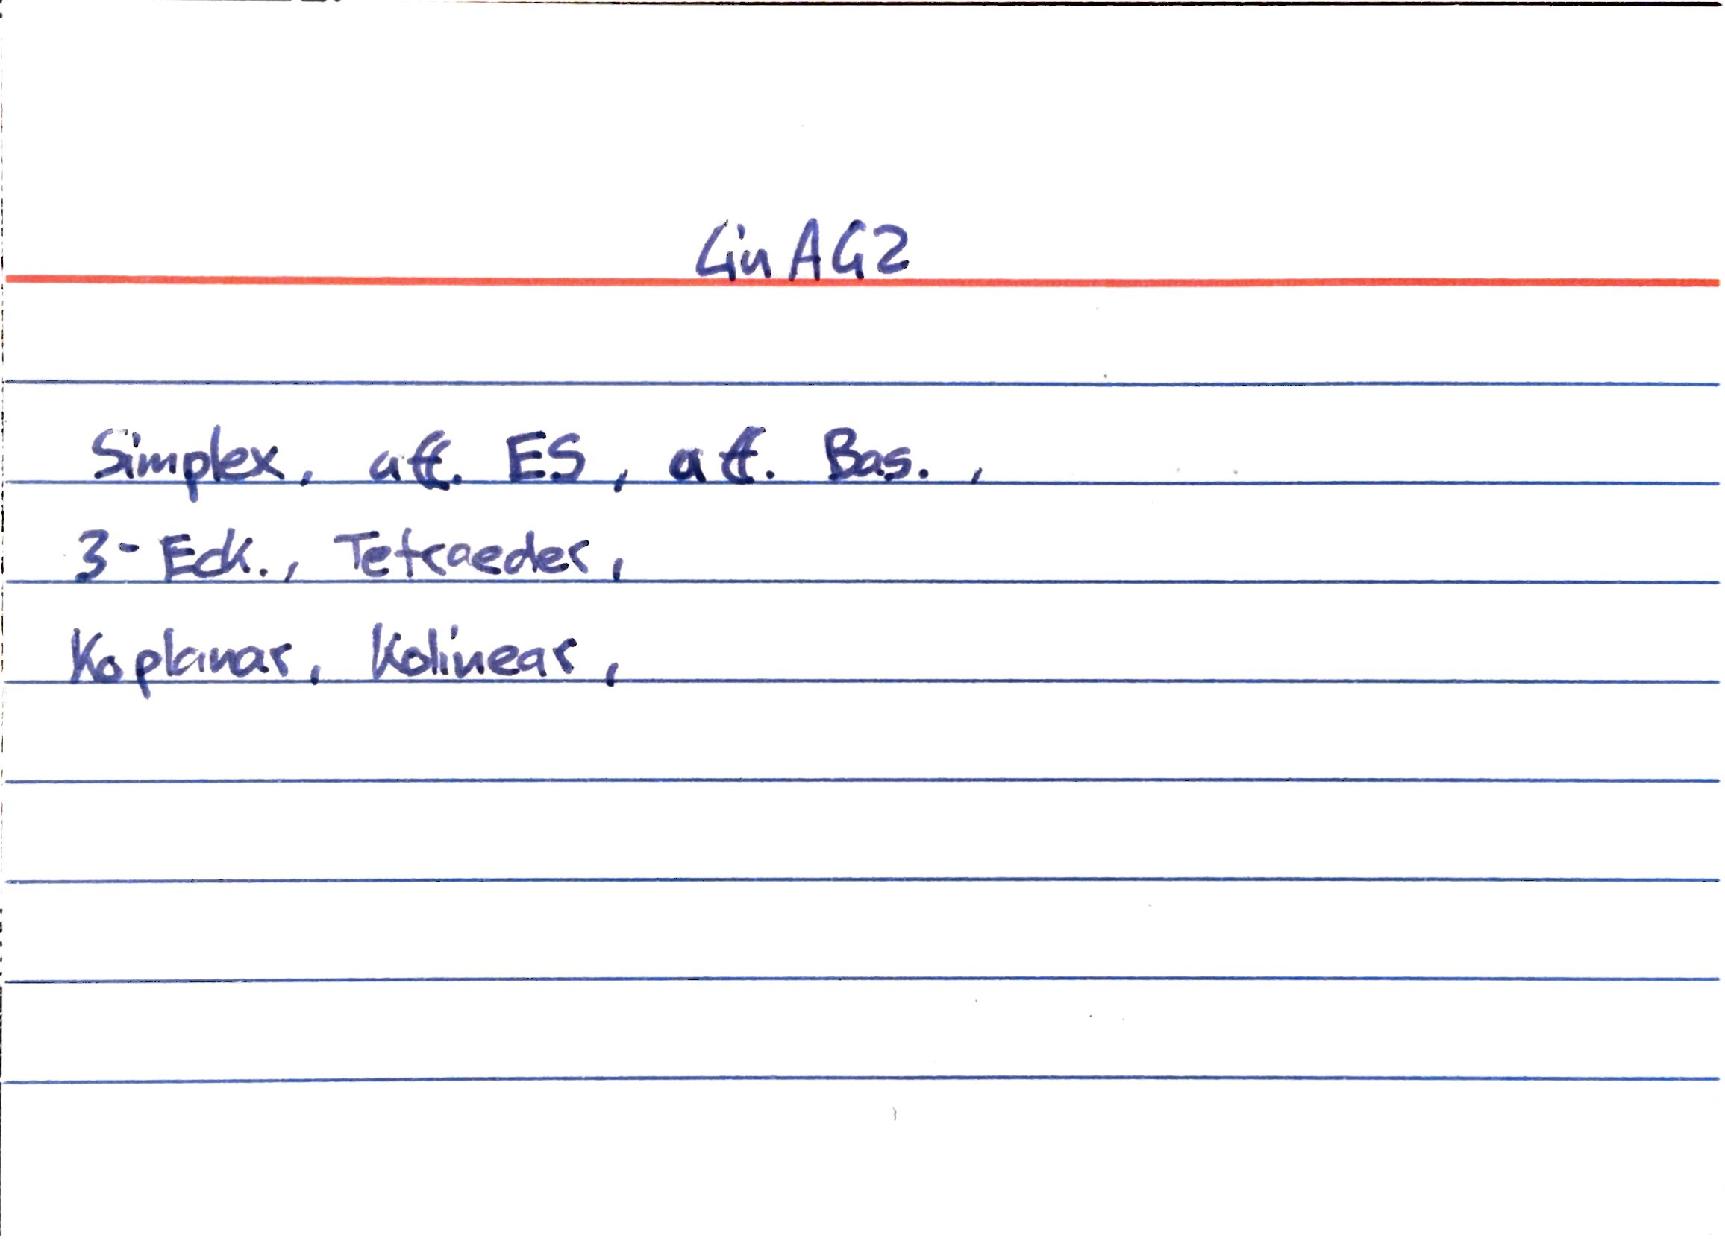 LinAG2
Simplex, aff. ES, aff. Bas.,
3-Eck., Tetraeder,
Koplanar, Kolinear,